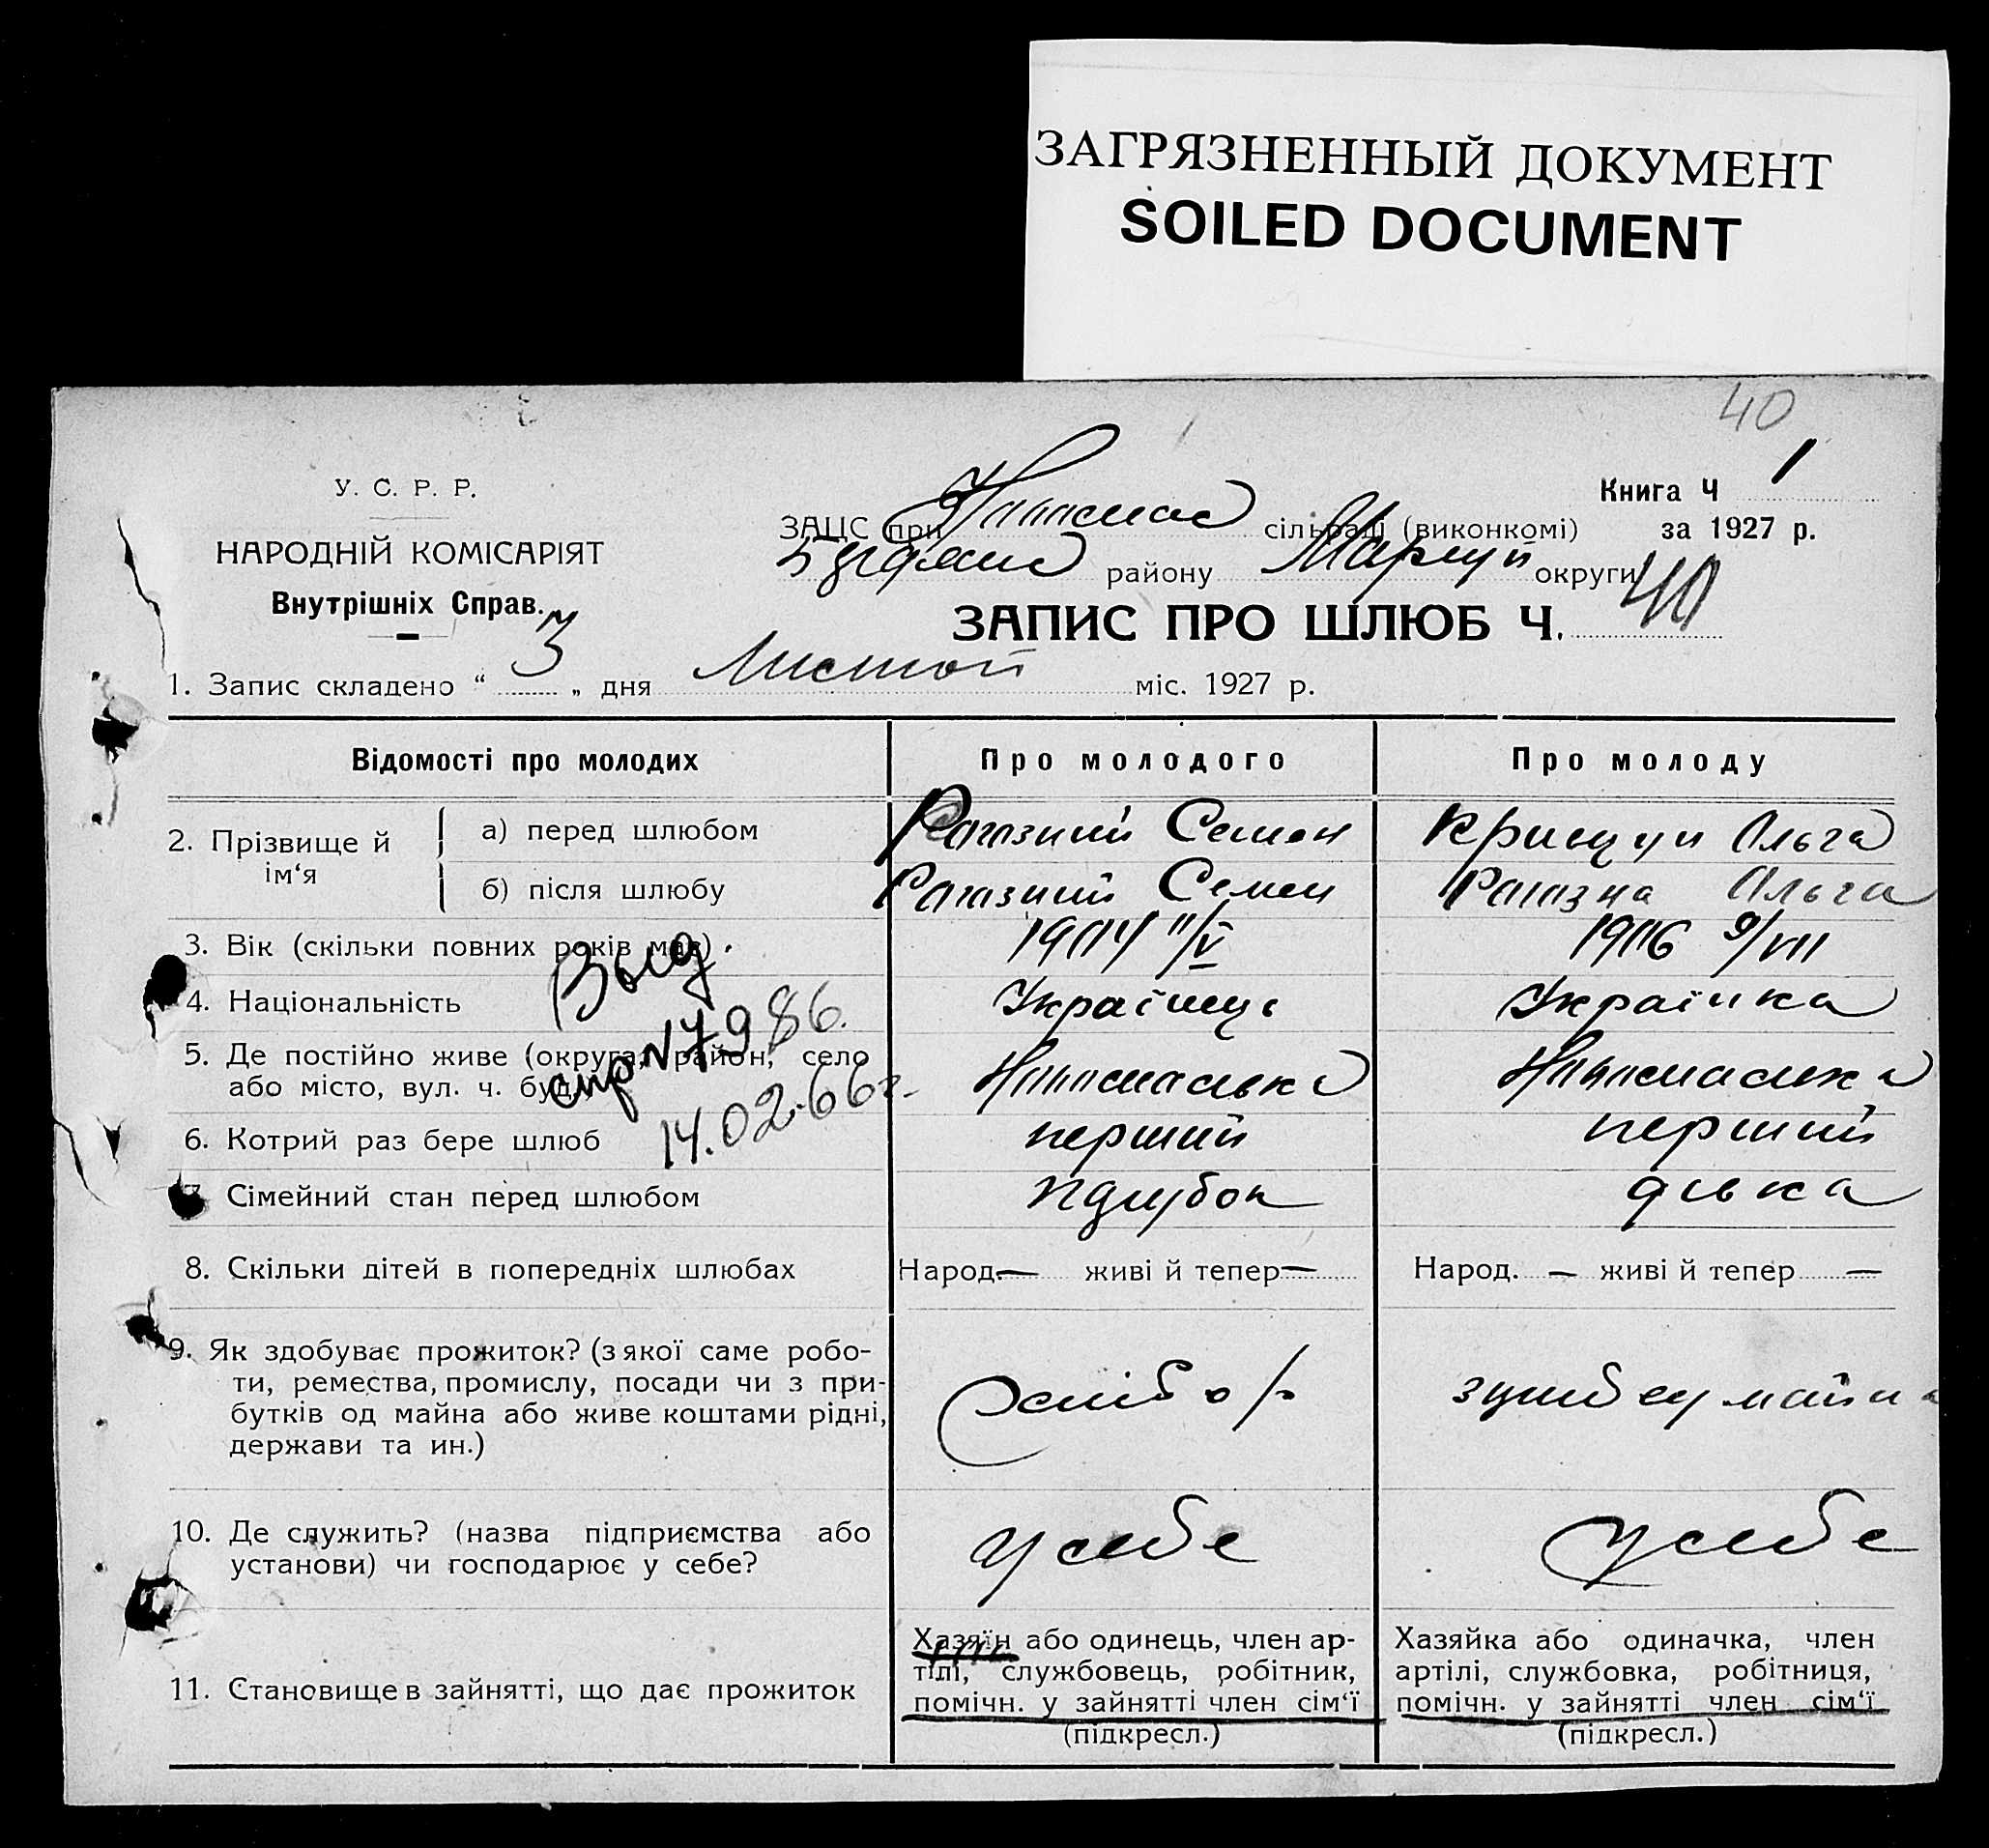 ЗАГРЯЗНЕННЫЙ ДОКУМЕНТ
SOILED DOCUMENT
40
У. С. Р. Р.
НАРОДНІЙ КОМІСАРІЯТ
Внутрішніх Справ.
ЗАЦС при сільраді (виконкомі)
району Маріуп округи
Книга Ч 1
за 1927 р.
ЗАПИС ПРО ШЛЮБ Ч. 40
1. Запис складено “ 3 „ дня Листоп міс. 1927 р.
Відомості про молодих Про молодого Про молоду
2. Прізвище й ім‘я
а) перед шлюбом Рагазний Семен Ольга
б) після шлюбу Рагазний Семен Рагазна Ольга
3. Вік (скільки повних років має) 1904 11/V 1906 9/VII
4. Національність Українець Українка
5. Де постійно живе (округа, район, село
або місто, вул. ч. буд.
Выд
спр N 7986.
14.02.66г.
6. Котрий раз бере шлюб перший перший
7. Сімейний стан перед шлюбом парубок дівка
8. Скільки дітей в попередніх шлюбах Народ. — живі й тепер — Народ. — живі й тепер —
9. Як здобуває прожиток? (з якої саме робо-
ти, ремества, промислу, посади чи з при-
бутків од майна або живе коштами рідні,
держави та ин.)
хлібор
10. Де служить? (назва підприємства або
установи) чи господарює у себе?
у себе у себе
11. Становище в зайнятті, що дає прожиток
Хазяїн або одинець, член ар-
тілі, службовець, робітник,
помічн. у зайнятті член сім‘ї
(підкресл.)
Хазяйка або одиначка, член
артілі, службовка, робітниця,
помічн. у зайнятті член сім‘ї
(підкресл.)